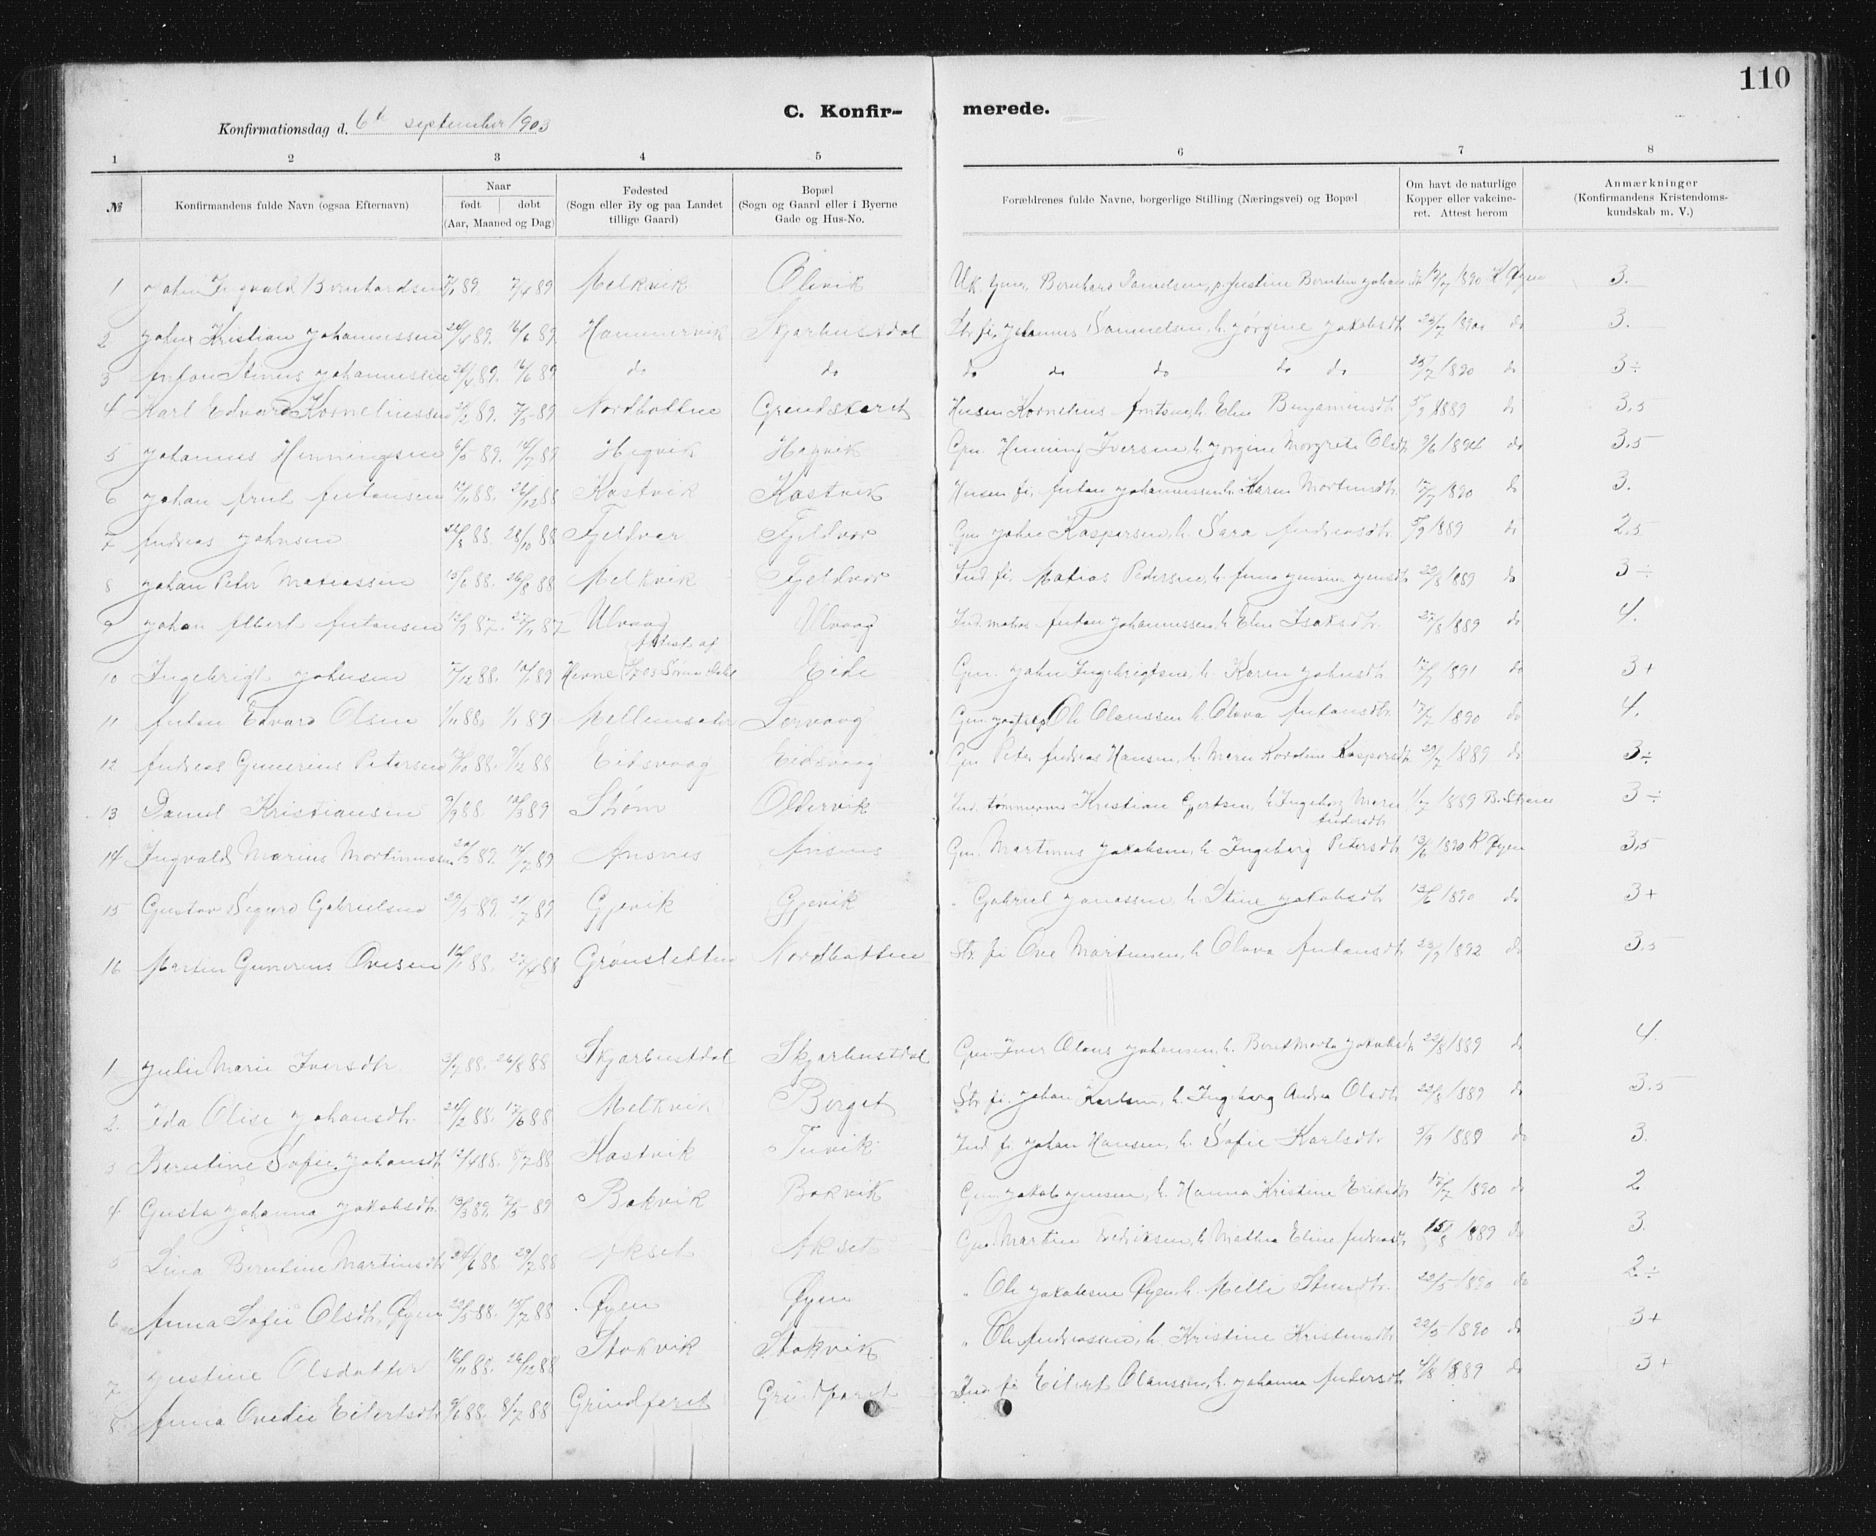 110
C. Konfir- merede.
Konfirmationsdag d. 6te september 1903
1 2 3 4 5 6 7 8
№ Konfirmandens fulde Navn (ogsaa Efternavn)
Naar
født døbt
(Aar, Maaned og Dag)
Fødested
(Sogn eller By og paa Landet
tillige Gaard)
Bopæl
(Sogn og Gaard eller i Byerne
Gade og Hus-No.
Forældrenes fulde Navne, borgerlige Stilling (Næringsvei) og Bopæl
Om havt de naturlige
Kopper eller vakcine-
ret. Attest herom
Anmærkninger
(Konfirmandens Kristendoms-
kundskab m. V.)
1 Johan Ingvald Bernhardsen 89 7/4 89 Melkvik Olivik Bernhard Danielsen, Justine Berntine 1890 3.
2 Johan Kristian Johannessen 89. 16/6 89 Hammervik Skjarbustdal Johannes Samuelsen, h. Jørgine Jakobsdtr 23/7 1890 do 3.
3 Anton Johannessen 89. 16/6 89 do do do do do do do 25/7 1890 do 3÷
4 Karl Edvard Korneliussen 89. 7/5 89 Nordbotten Grendskaret Husm Kornelius h. Elen Benjaminsdtr 5/9 1889 do 3,5
5 Johannes Henningsen 6/5 89. 14/7 89 Hegvik Hegvik Gm. Henning Iversen h. Jørgine Margrete Olsdtr 9/6 1894 do 3,5
6 Johan Antonsen 11 88. 26/12 88 Kastvik Kastvik Husm fi. Anton Johannessen h. Karen Martinsdtr 17/7 1890 do 3.
7 Andreas Johnsen 24/8 88. 28/10 88 Fjeldvær Fjeldvær Gm John Kaspersen, h. Sara Andreasdtr 5/9 1889 do 2,5
8 Johan Peter Matiassen 15/6 88. 26/8 88 Melkvik Fjeldvær Ind. fi. Matias Pedersen, h. Anna Jensine Jensdtr 22/8 1889 do 3÷
9 Johan Albert Antonsen 87. 27/11 87 Ulvaag Ulvaag Anton Johannessen, h. Elen Isaksdtr. 22/8 1889 do 4.
10 Ingebrigt Johnsen 12 88. 89 Hevne Eide Gm. John Ingebrigtsen, h. Karen Johnsdtr 17/7 1891 do 3+
11 Anton Edvard Olsen 1/11 88. 1/1 89 Mellemsæter Sørvaag Gm. Ole Olaussen h. Olava Antonsdtr 17/7 1890 do 4.
12 Andreas Gunerius Petersen 10 88. 12 88 Eidsvaag Eidsvaag Gm Peter Andreas Hansen, h. Maren Karoline Kaspersdtr 29/7 1889 do 3÷
13 Daniel Kristiansen 9/9 88. 10/3 89 Strøm Oldervik Ind. tømmermd Kristian Ejertsen, h. Ingeborg Marie Andersdtr 1/7 1889 B. Strøm 3÷
14 Ingvald Marius Martinussen 89. 14/7 89 Ansnes Ansnes Gm. Martinus Jakobsen, h. Ingeborg Petersdtr 13/6 1890 K Øyen 3,5
15 Gustav Sigurd Gabrielsen 29/5 89. 21/7 89 Gjevik Gjevik " Gabriel Jonassen h. Stine Jakobsdtr 13/6 1890 do 3+
16 Martin Gunerius Ovesen 88. 22/4 88 Grønsletten Nordbotten Str. fi Ove Martinsen, h. Olava Antonsdtr 23/7 1892 do 3.5
1 Julie Marie Iversdtr 88. 26/8 88 Skjarbustdal Skjarbustdal Gm Iver Olaus Johansen, h. Beret Marta Jakobsdtr 22/8 1889 do 4.
2 Ida Olise Johansdtr. 24/2 88. 17/6 88 Melkvik Berget Str. fi. Johan Karlsen, h. Ingeborg Andrea Olsdtr 22/8 1889 do 3.5
3 Berntine Sofie Johansdtr 12/4 88. 8/7 88 Kastvik Tuvik Ind fi Johan Hansen, h. Sofie Karlsdtr. 5/9 1889 do 3.
4 Gusta Johanna Jakobsdtr. 13/3 89. 7/5 89 Bakvik Bakvik Gm. Jakob Jensen, h. Hanna Kristine Eriksdtr 17/7 1890 do 2
5 Lina Berntine Martinsdtr 24/6 88. 29/7 88 Akset Akset Gm. Martin Fredriksen, h. Mathea Eline Andreasdtr 15/8 1889 do 3.
6 Anna Sofie Olsdtr. Øyen 22/5 88. 15/7 88 Øyen Øyen " Ole Jakobsen Øyen, h. Melli 22/5 1890 do 2÷
7 Justine Olsdatter 16/11 88. 26/12 88 Stokvik Stokvik " Ole Andreassen, h. Kristine Kristensdtr 22/5 1890 do 3+
8 Anna Ovedie Eilertsdtr 9/6 88. 8/7 88 Grindfaret Grindfaret Ind. fi Eilert Olaussen, h. Johanna Andersdtr 8 1889 do 3+